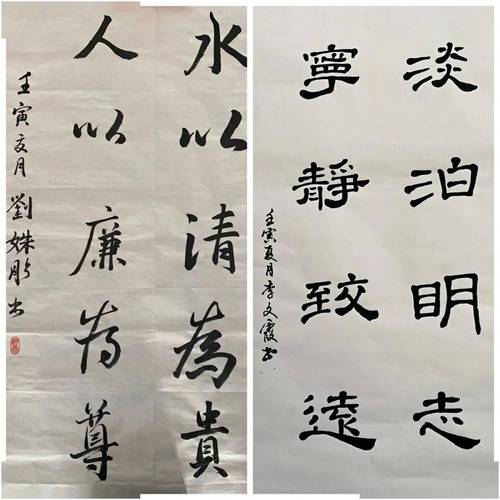 水以清為貴
人以廉為尊
壬寅夏月劉姝彤書
淡泊明志
寧靜致遠
壬寅夏月李文霞書